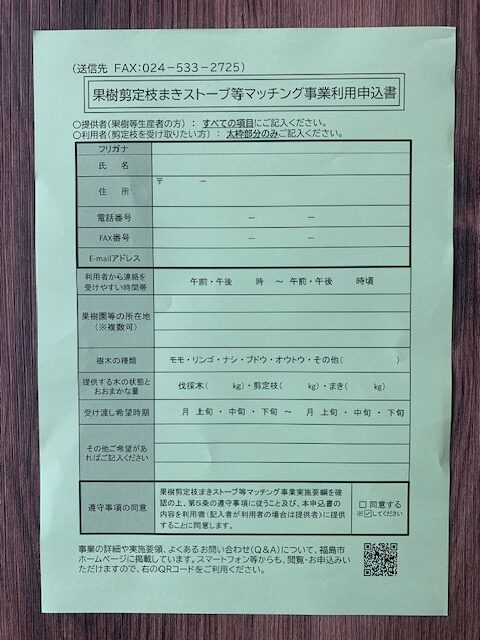 (送信先 FAX:024-533-2725)
果樹剪定枝まきストーブ等マッチング事業利用申込書
○提供者(果樹等生産者の方) : すべての項目にご記入ください。
○利用者(剪定枝を受け取りたい方) : 太枠部分のみご記入ください。
フリガナ
氏 名
住 所
〒 －
電話番号
－ －
FAX番号
－ －
E-mailアドレス
利用者から連絡を
受けやすい時間帯
午前・午後 時 ～ 午前・午後 時頃
果樹園等の所在地
(※複数可)
樹木の種類
モモ・リンゴ・ナシ・ブドウ・オウトウ・その他( )
提供する木の状態と
おおまかな量
伐採木( kg)・剪定枝( kg)・まき( kg)
受け渡し希望時期
月 上旬・中旬・下旬 ～ 月 上旬・中旬・下旬
その他ご希望があ
ればご記入ください
遵守事項の同意
果樹剪定枝まきストーブ等マッチング事業実施要綱を確
認の上、第5条の遵守事項に従うこと及び、本申込書の
内容を利用者(記入者が利用者の場合は提供者)に提供
することに同意します。
□ 同意する
※☑してください
事業の詳細や実施要領、よくあるお問い合わせ(Q&A)について、福島市
ホームページに掲載しています。スマートフォン等からも、閲覧・お申込みい
ただけますので、右のQRコードをご利用ください。